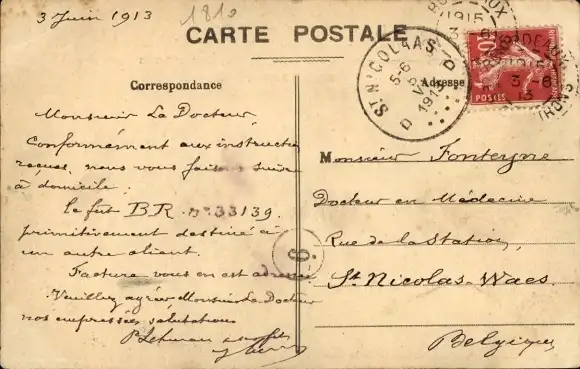 3 Juin 1913
1810
CARTE POSTALE
Correspondance
Adresse
ST NICOLAAS
D
5-6
V
1913
BORDEAUX
1915
3-6
13
10
POSTES
Monsieur Le Docteur,
Conformément aux instructions
reçues, nous vous faisons suivre
à domicile.
le fût B.R. n° 33139.
primitivement destiné à
un autre client.
Facture vous en est adressée
Veuillez agréer Monsieur Le Docteur
nos empressées salutations
6
Monsieur Fonteyne
Docteur en Médecine
Rue de la Station,
St. Nicolas-Waes.
Belgique